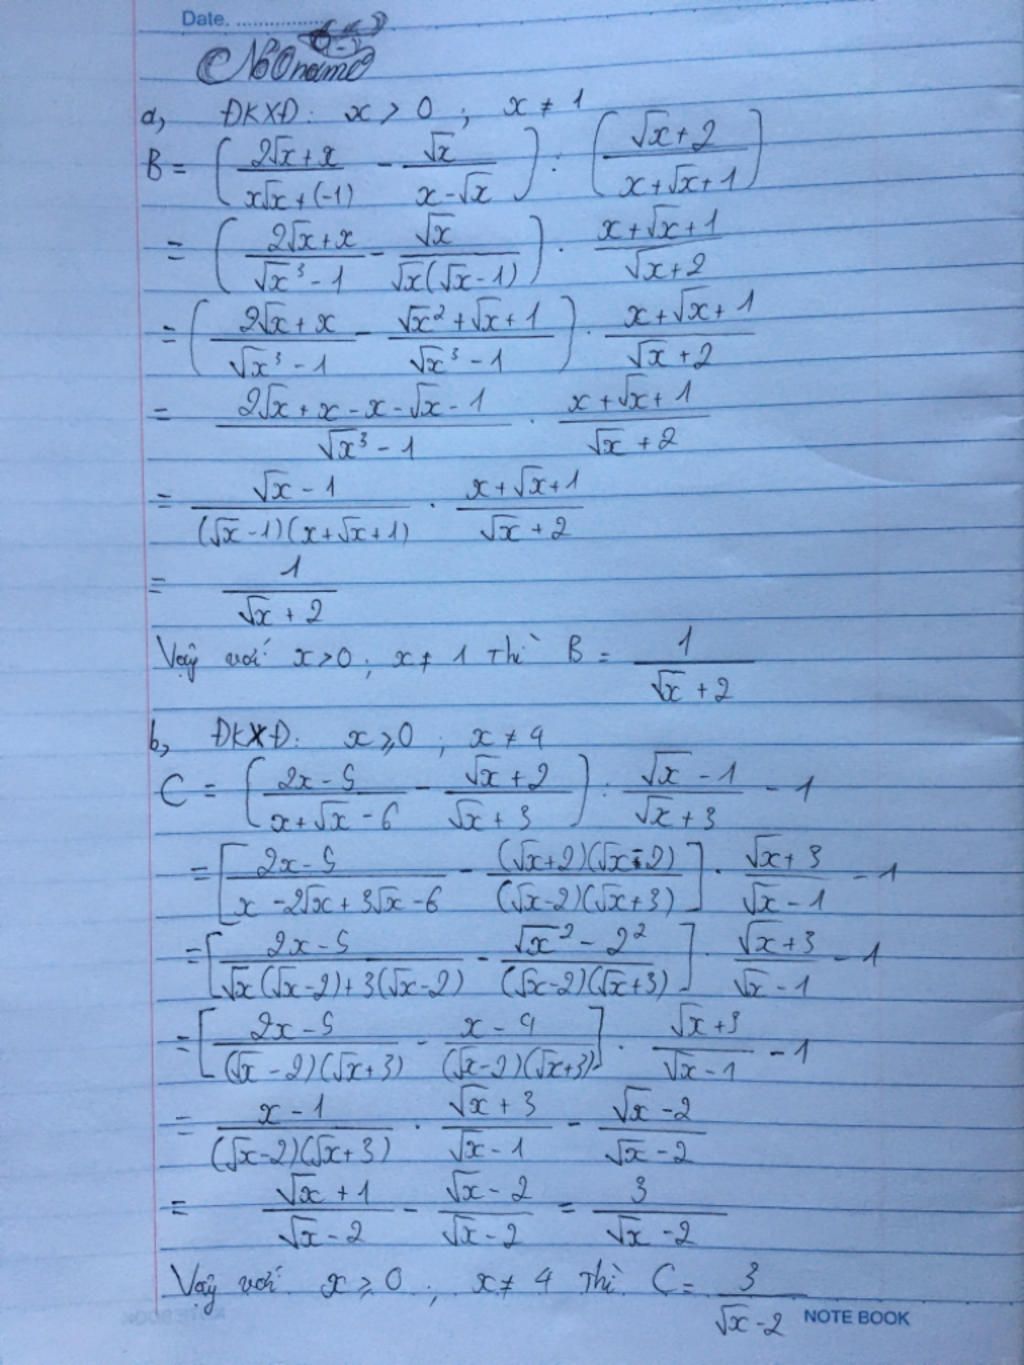 Date. ................
NoOname
a, ĐKXĐ: x > 0 ; x ≠ 1
B = ( (2√x + x)/(x√x + (-1)) - √x/(x - √x) ) : ( (√x + 2)/(x + √x + 1) )
= ( (2√x + x)/(√x³ - 1) - √x/(√x(√x - 1)) ) · (x + √x + 1)/(√x + 2)
= ( (2√x + x)/(√x³ - 1) - (√x² + √x + 1)/(√x³ - 1) ) · (x + √x + 1)/(√x + 2)
= (2√x + x - x - √x - 1)/(√x³ - 1) · (x + √x + 1)/(√x + 2)
= (√x - 1)/((√x - 1)(x + √x + 1)) · (x + √x + 1)/(√x + 2)
= 1/(√x + 2)
Vậy với x > 0 ; x ≠ 1 Thì B = 1/(√x + 2)
b, ĐKXĐ: x ⩾ 0 ; x ≠ 4
C = ( (2x - 5)/(x + √x - 6) - (√x + 2)/(√x + 3) ) : (√x - 1)/(√x + 3) - 1
= [ (2x - 5)/(x - 2√x + 3√x - 6) - ((√x + 2)(√x - 2))/((√x - 2)(√x + 3)) ] · (√x + 3)/(√x - 1) - 1
= [ (2x - 5)/(√x(√x - 2) + 3(√x - 2)) - (√x² - 2²)/((√x - 2)(√x + 3)) ] · (√x + 3)/(√x - 1) - 1
= [ (2x - 5)/((√x - 2)(√x + 3)) - (x - 4)/((√x - 2)(√x + 3)) ] · (√x + 3)/(√x - 1) - 1
= (x - 1)/((√x - 2)(√x + 3)) · (√x + 3)/(√x - 1) - (√x - 2)/(√x - 2)
= (√x + 1)/(√x - 2) - (√x - 2)/(√x - 2) = 3/(√x - 2)
Vậy với x ⩾ 0 ; x ≠ 4 Thì C = 3/(√x - 2)
NOTE BOOK